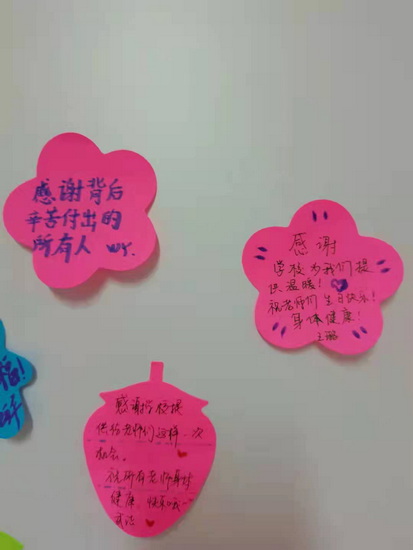 感谢背后
辛苦付出的
所有人
感谢
学校为我们提
供温暖！
祝老师们生日快乐！
身体健康！
福！
感谢学校提
供给老师们这样一次
机会。
祝所有老师身
健康